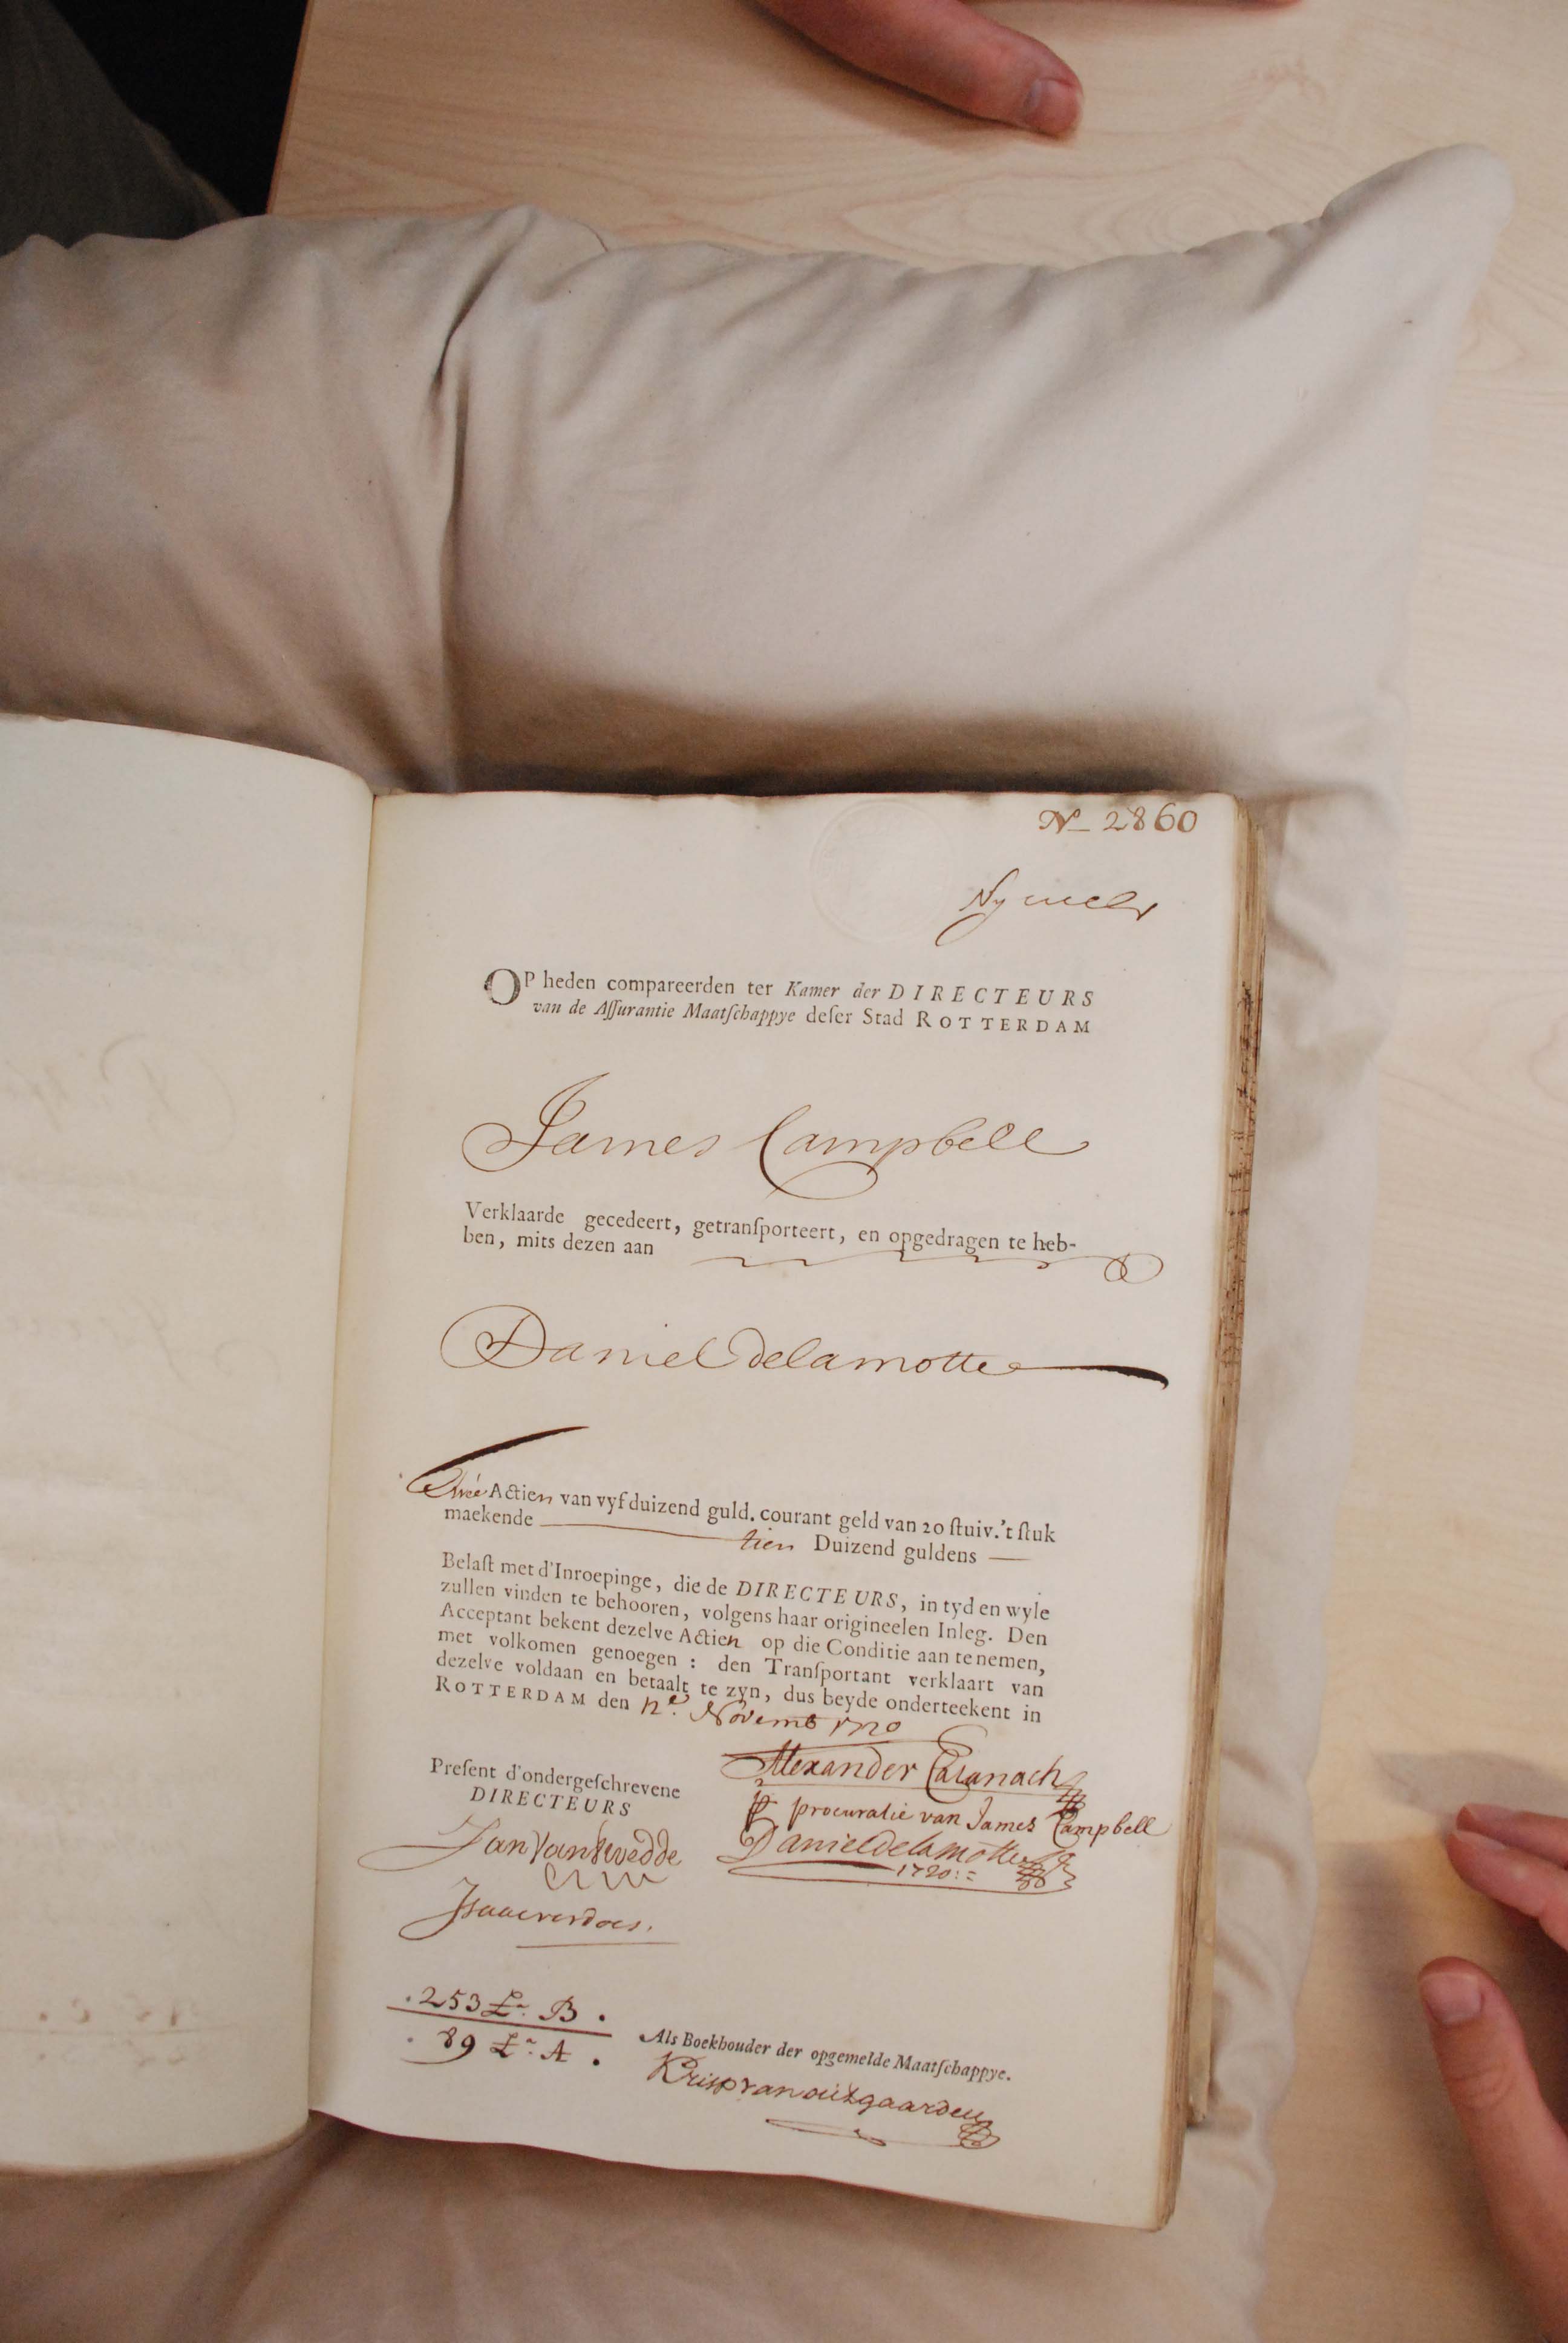 No 2860
OP heden compareerden ter Kamer der DIRECTEURS
van de Aſſurantie Maatſchappye deſer Stad ROTTERDAM
James Campbell
Verklaarde gecedeert, getranſporteert, en opgedragen te heb-
ben, mits dezen aan
Daniel delamotte
Twee Actien van vyf duizend guld. courant geld van 20 ſtuiv. 't ſtuk
maekende tien Duizend guldens
Belaſt met d'Inroepinge, die de DIRECTEURS, in tyd en wyle
zullen vinden te behooren, volgens haar origineelen Inleg. Den
Acceptant bekent dezelve Actien op die Conditie aan te nemen,
met volkomen genoegen : den Tranſportant verklaart van
dezelve voldaan en betaalt te zyn, dus beyde onderteekent in
ROTTERDAM den 12e. Novemb 1720
Preſent d'ondergeſchrevene
DIRECTEURS
Alexander
procuratie van James Campbell
Daniel delamotte
1720
Jan Van
Isaac verdoes.
253 La. B.
89 La. A.
Als Boekhouder der opgemelde Maatſchappye.